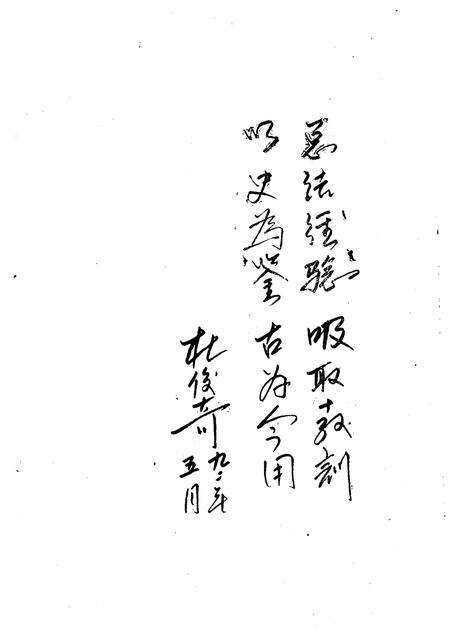 总结经验 吸取教训
以史为鉴 古为今用
杜俊奇
九二年
五月